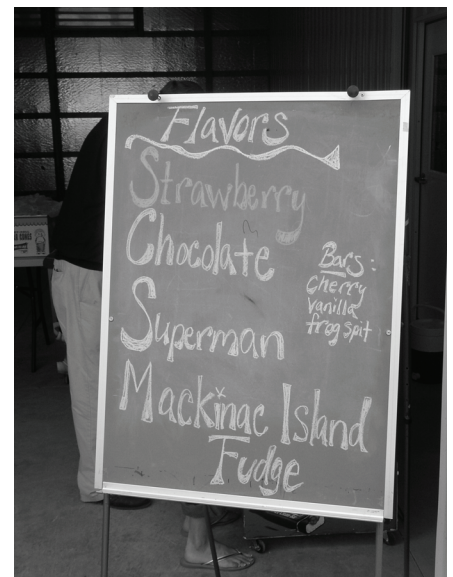 Flavors
Strawberry
Chocolate
Superman
Mackinac Island
Fudge
Bars:
Cherry
vanilla
frog spit